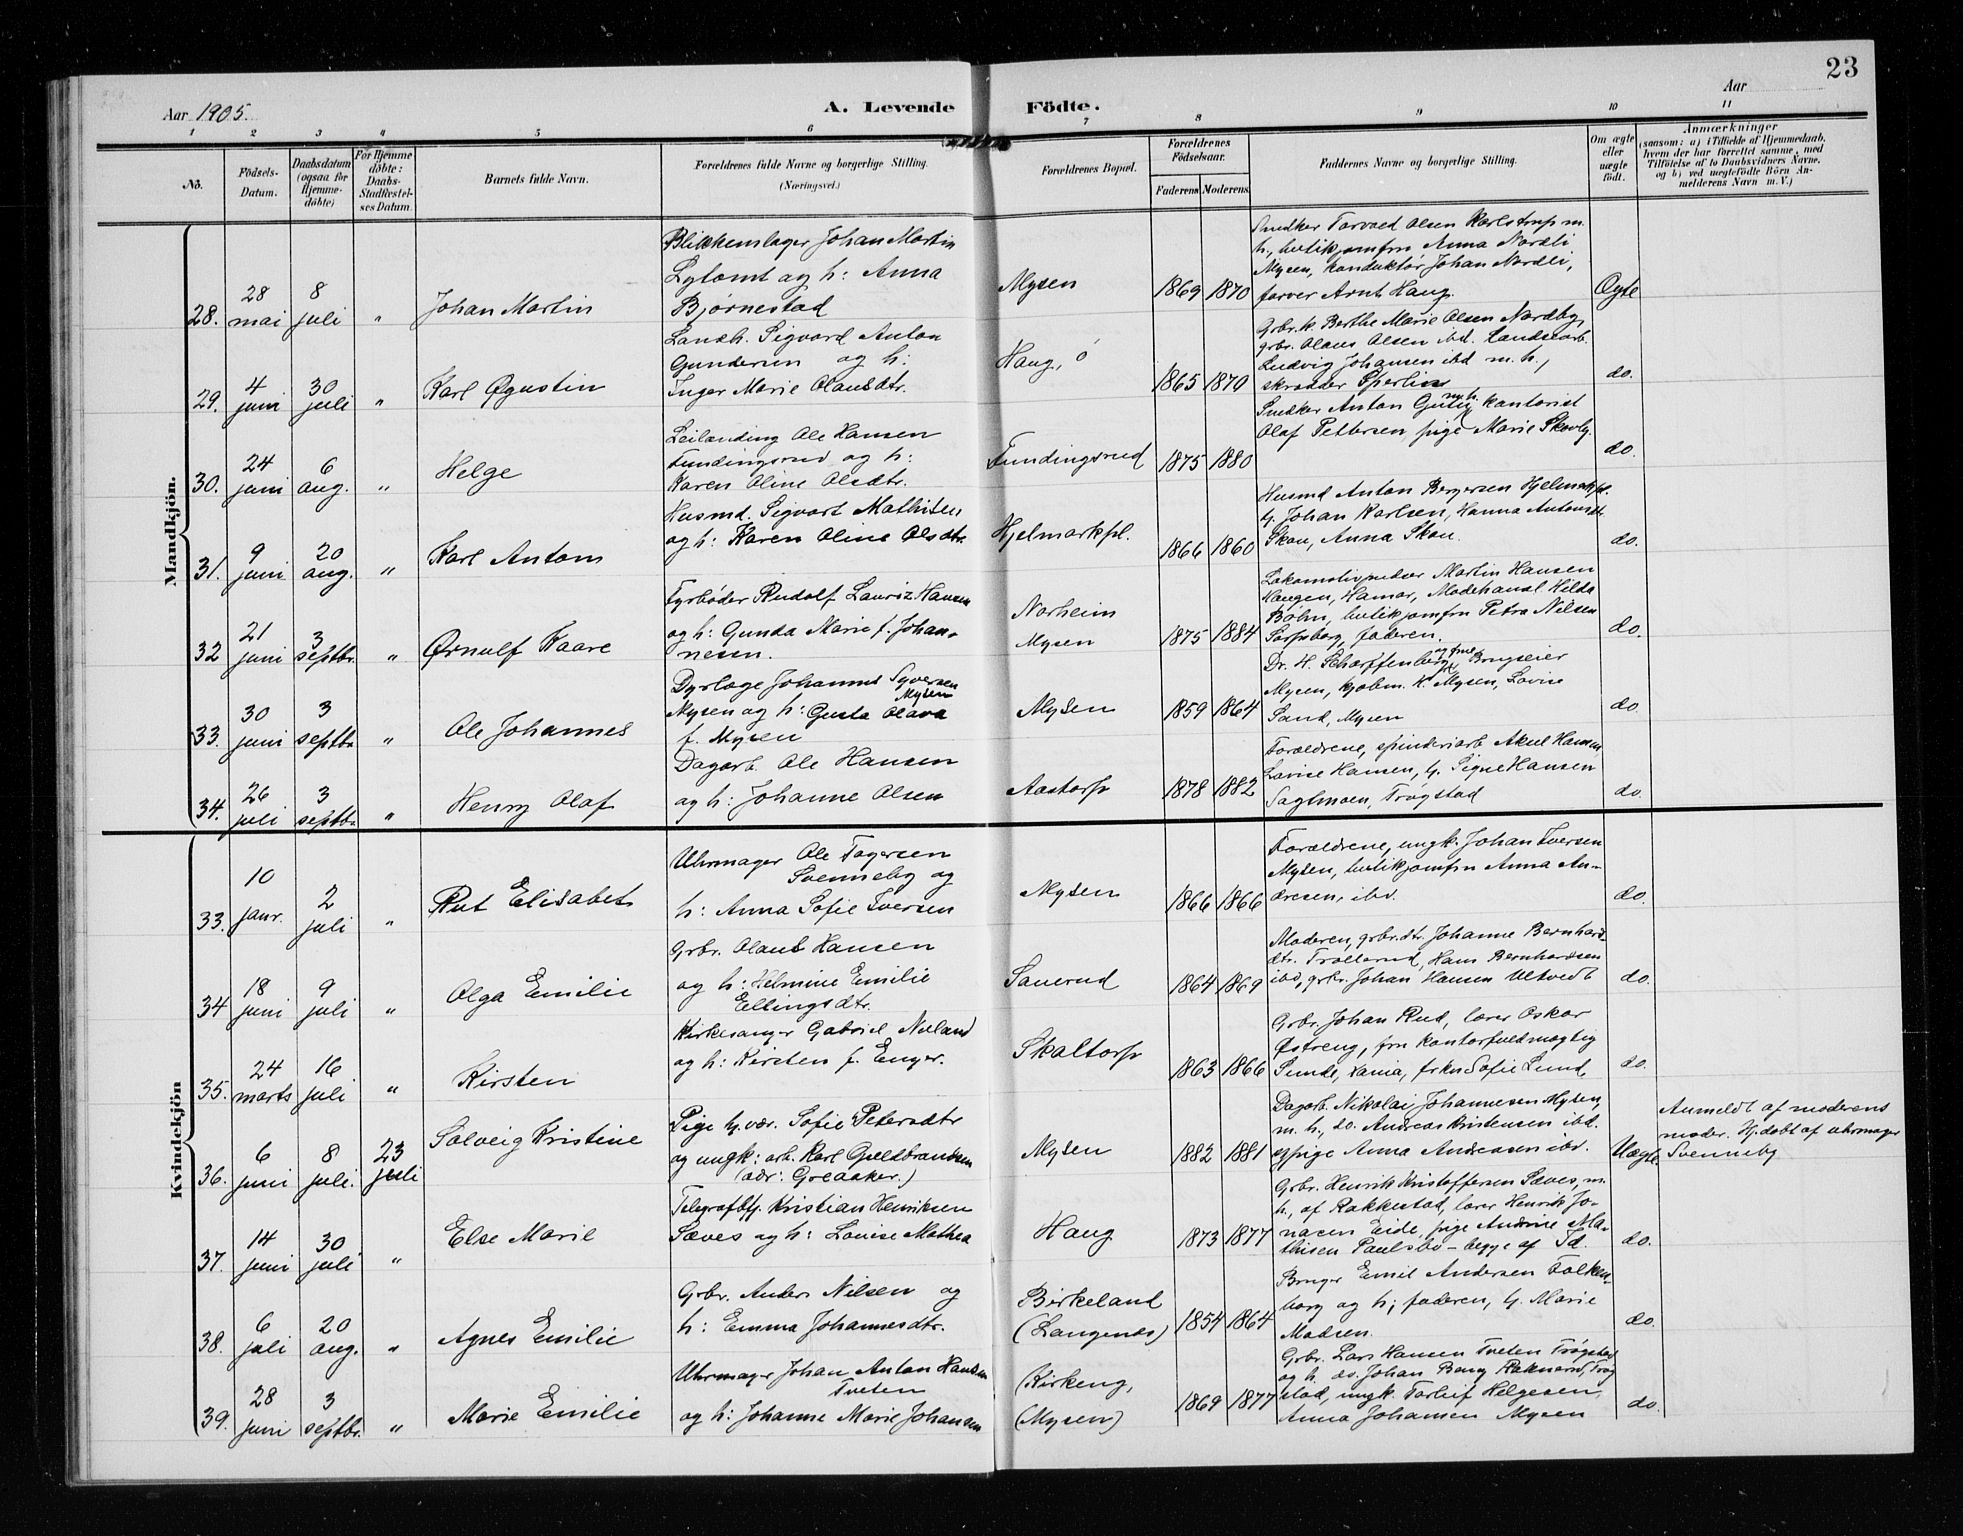 23
Aar 1905.
A. Levende Födte.
Aar
1 2 3 4 5 6 7 8 9 10 11
No.
Födsels-Datum.
Daabsdatum (ogsaa for Hjemme-döbte)
For Hjemme döbte: Daabs-Stadfæstel-ses Datum.
Barnets fulde Navn.
Forældrenes fulde Navne og borgerlige Stilling.
(Næringsvei.)
Forældrenes Bopæl.
Forældrenes Födselsaar.
Faderens Moderens
Faddernes Navne og borgerlige Stilling.
Om ægte eller uægte födt.
Anmærkninger
(saasom: a) i Tilfælde af Hjemmedaab, hvem der har forrettet samme, med Tilföielse af to Daabsvidners Navne, og b) ved uægtefödte Börn An-melderens Navn m. V.)
Mandkjön.
28. 28 mai 8 juli " Johan Martin
Blikkenslager Johan Martin
Lytomt og h: Anna
Bjørnestad
Mysen 1869 1870
Snedker Torvald Olsen Karlstrup m.
h., butikjomfru Anna Nordli
Mysen, konduktør Johan Nordli,
farver Arnt Haug.
Ægte
29. 4 juni 30 juli " Karl Øgustin
Landh. Sigvard Anton
Gundersen og h:
Inger Marie Olausdtr.
Haug, ö 1865 1870
Grbr. k. Berthe Marie Olsen Nordby,
grbr. Olaus Olsen ibd. Landsarb.
Ludvig Johansen ibd m. h.,
skrædder Sperlin
do.
30. 24 juni 6 aug. " Helge
Leilending Ole Hansen
Fundingsrud og h:
Karen Oline Olsdtr.
Fundingsrud 1875 1880
Snedker Anton m. h. kontorist
Olaf Pettersen pige Marie Skovly.
do.
31. 9 juni 20 aug. " Karl Antom
Husmd. Sigvart Mathisen
og h: Karen Oline Olsdtr.
Hjelmarkpl. 1866 1860
Husmd Anton Bergersen Hjelmarkpl.
G. Johan Karlsen, Hanna Antonsdt
Skou, Anna Skou.
do.
32 21 juni 3 septbr. " Ørnulf Kaare
Fyrbøder Rudolf Lauriz Hansen
og h: Gunda Marie f. Johan-
nesen.
Norheim
Mysen 1875 1884
Lokomotivpudser Martin Hansen
Haugen, Hamar, Modehandl Hilda
Bøhn, butikjomfru Petra Nilsen
Sarpsborg, faderen.
do.
33. 30 juni 3 septbr " Ole Johannes
Dyrlæge Johannes Syversen
Mysen
Mysen og h: Gusta Olava
f. Mysen
Mysen 1859 1864
Dr. H. Scharffenberg og frue, Brugseier
Mysen, kjøbm. K. Mysen, Lovise
Sand, Mysen
do
34. 26 juli 3 septbr " Henry Olaf
Dagarb. Ole Hansen
og h: Johanne Olsen
Aastorp 1878 1882
Forældrene, spinderiarb Aksel Hansen
Lovise Hansen, G. Signe Hansen
Saglmoen, Trøgstad
do.
Kvindekjön
33. 10 janr. 2 juli " Rut Elisabet
Uhrmager Ole Togersen
Svenneby og
h: Anna Sofie Iversen
Mysen 1866 1866
Forældrene, ungk. Johan Iversen
Mysen, butikjomfru Anna An-
dresen, ibd.
do.
34 18 juni 9 juli " Olga Emilie
Grbr. Olaus Hansen
og h: Helmine Emilie
Ellingsdtr.
Sauerud 1864 1869
Moderen, grbr.dtr. Johanne Bernhards-
dtr. Trollerud, Hans Bernhardsen
ibd, grbr. Johan Hansen Ultvedt
do.
35. 24 marts 16 juli " Kirsten
Kirkesanger Gabriel Næland
og h: Kirsten f. Enger.
Skaltorp 1863 1866
Grbr. Johan Rud, lærer Oskar
Østreng, fru kontorfuldmægtig
Sunde, Xania, frkn Sofie Lund
do.
36. 6 juni 8 juli. 23 juli Solveig Kristine
Pige G. vær. Sofie Petersdtr
og ungk: arb. Karl Guldbrandsen
(adr: Greaaker.)
Mysen 1882 1881
Dagarb. Nikolai Johannesen Mysen,
m. h., do. Andreas Kristensen ibd.
pige Anna Andreasen ibd.
Uægte.
Anmeldt af moderens
moder. Hj.døbt af uhrmager
Svenneby
37. 14 juni 30 juli " Else Marie
Telegrafbtj. Kristian Henriksen
Sæves og h: Louise Mathea
Haug 1873 1877
Grbr. Henrik Kristoffersen Sæves, m.
h., af Rakkestad, lærer Henrik Jo-
nasen Eide, pige Andrine Ma-
thisen Paulsbo – begge af Id.
do.
38. 6 juli 20 aug. " Agnes Emilie
Grbr. Anders Nilsen og
h: Emma Johannesdtr.
Birkeland
(Langenes) 1854 1864
Bruger Emil Andersen Folken-
borg og h; faderen, G. Marie
Madsen.
do.
39. 28 juni 3 septbr. " Marie Emilie
Uhrmager Johan Anton Hansen
Tveten
og h: Johanne Marie Johansen
(Kirkeng,
(Mysen) 1869 1877
Grbr. Lars Hansen Tveten Trøgstad
og h. do. Johan Berg Raknerud, Trøg
stad, ungk. Torleif Helgesen,
Anna Johansen Mysen
do.